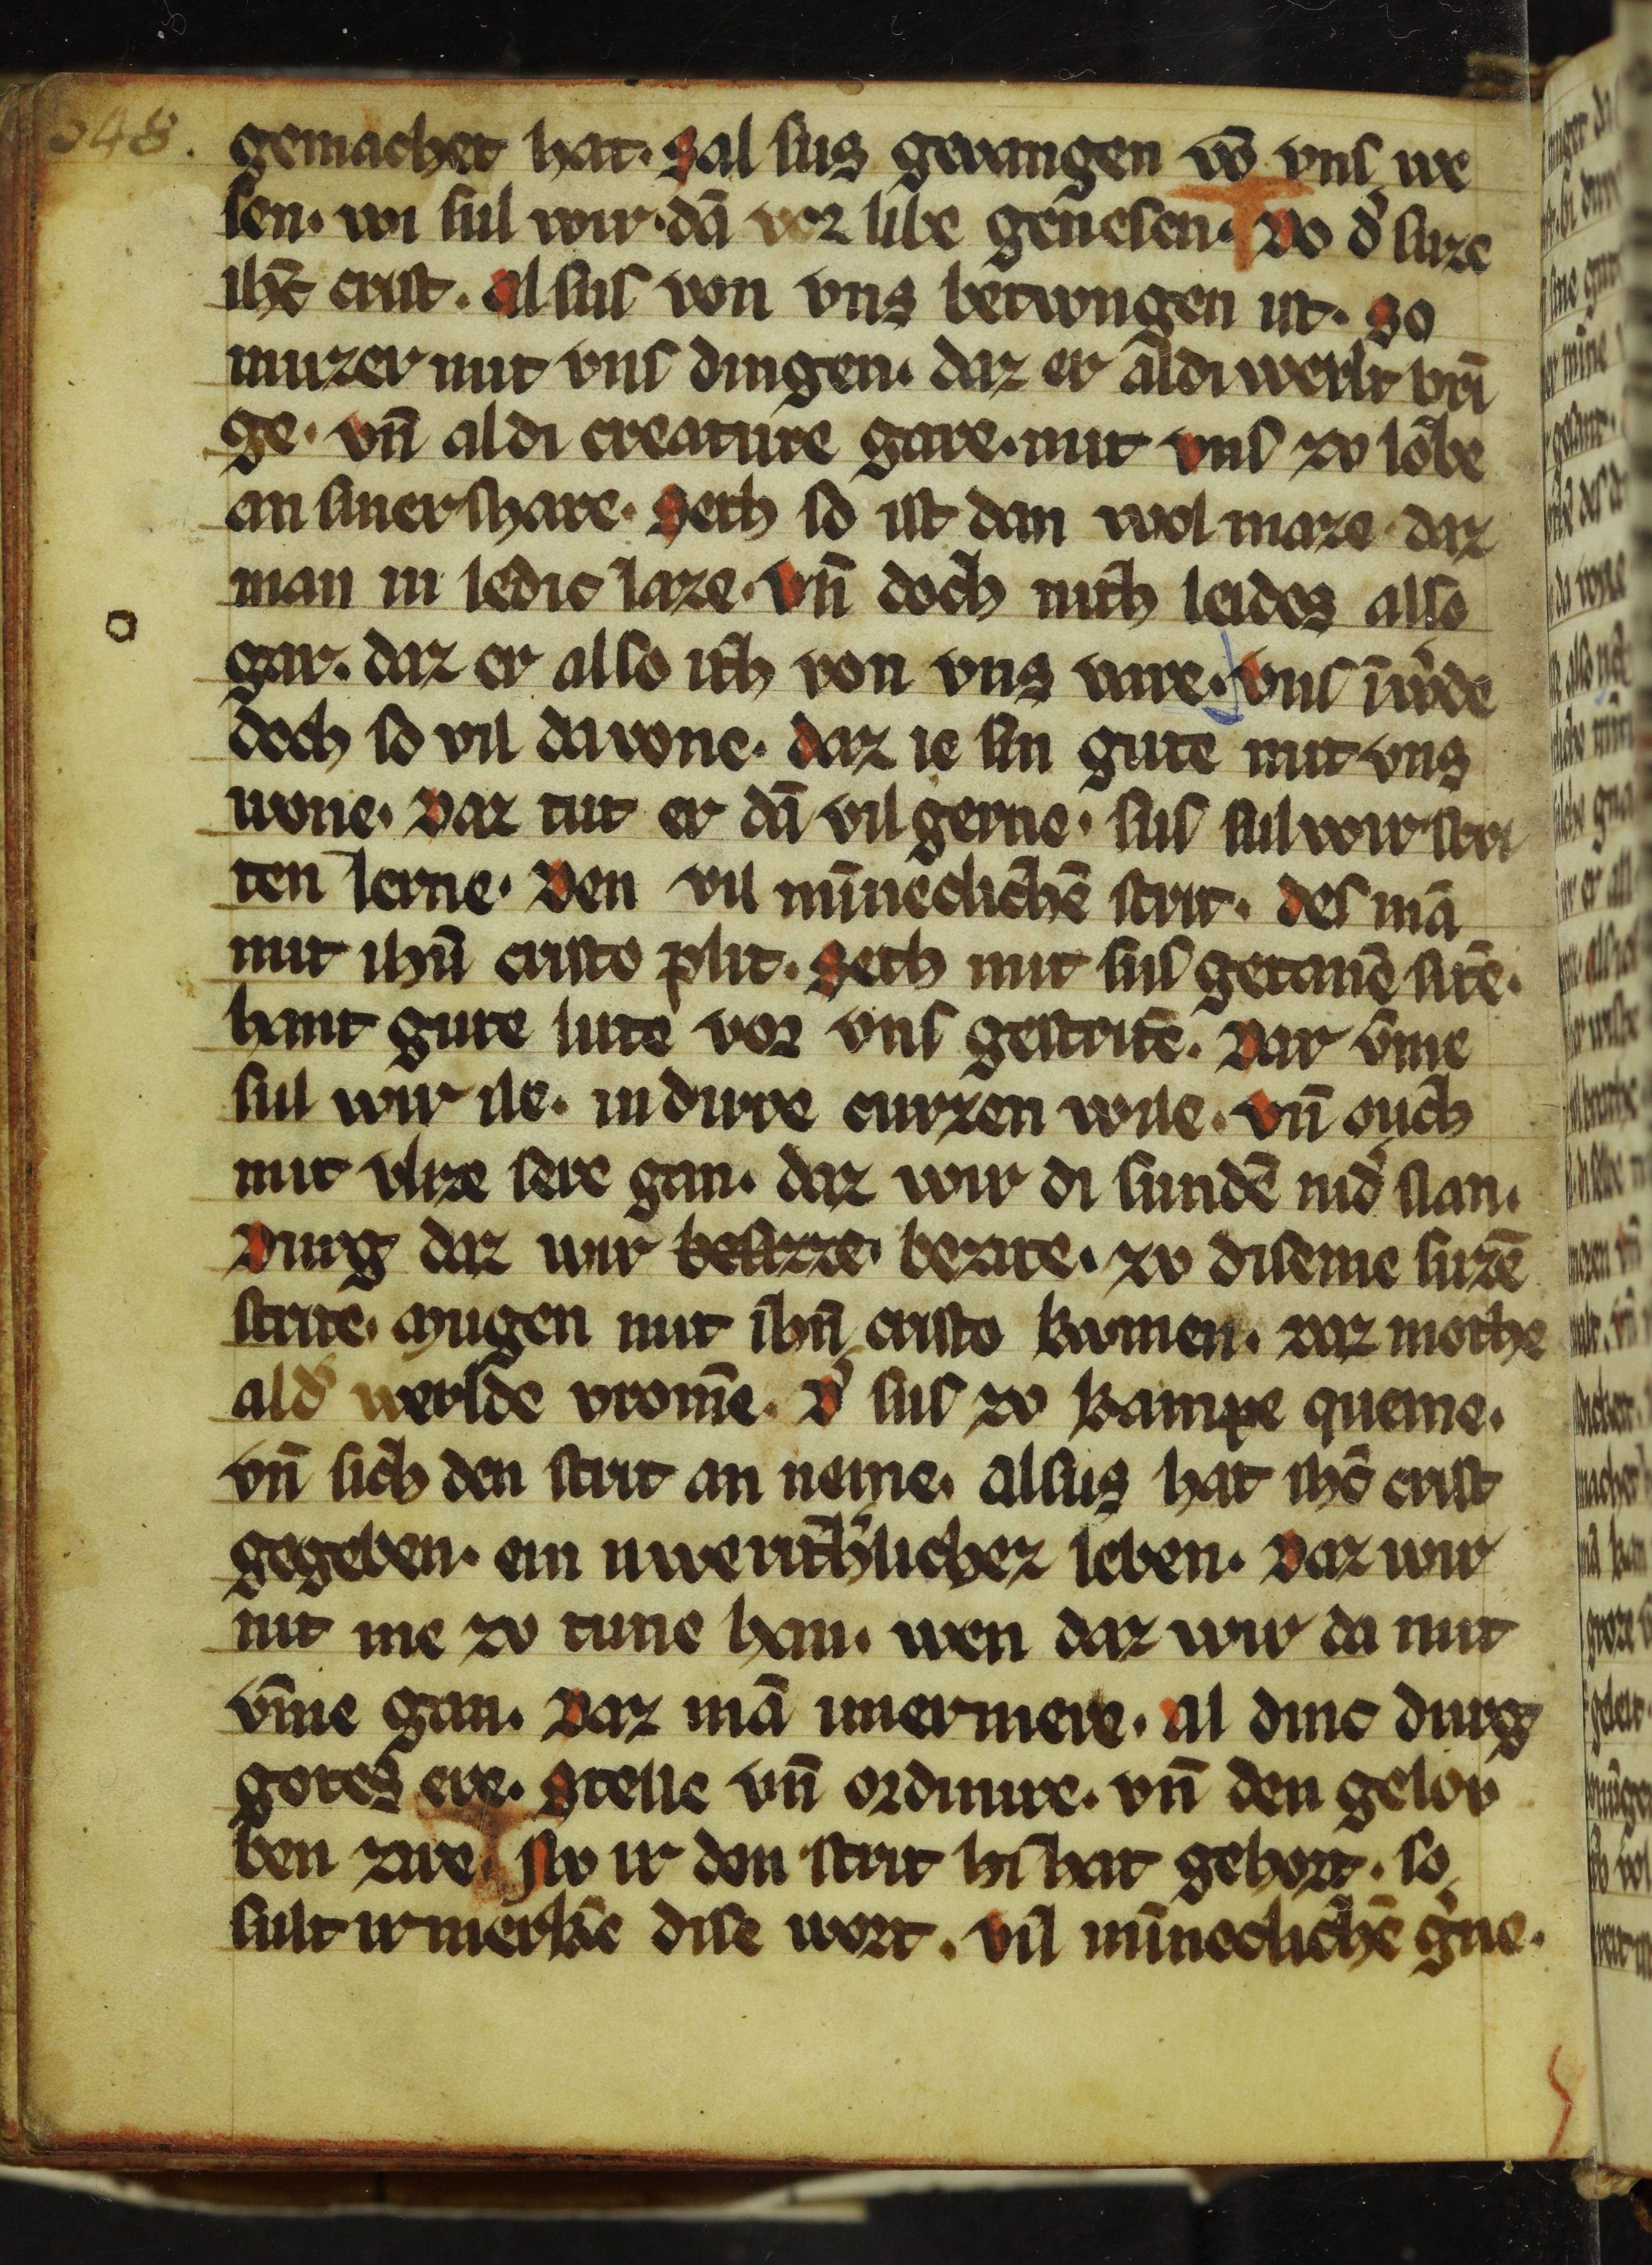 348.
gemachet hat. Sal sus gevangen vō vns we
sen. wi sul wir. dā vor libe genesen. Do d' suze
ihc̄ crist. Al sus von vns betwngen ist. So
muzer mit vns dingen. daz er aldi werlt bri̅
ge. vn̄ aldi creature gare. mit vns zv lobe
an siner share. Seth so ist dan wol maze daz
man in ledic laze. Vn̄ doch nith leides also
gar. daz er also ith von vns vare. Vns īw'de
doch so vil da vone. daz ie sin gute mit vns
wone. Daz tut er dā vil gerne. sus sul wir stri
ten lerne. Den vil mīneclichē strit. des mā
mit ihū cristo plit. Seth mit sus getanē sitē.
hant gute lute vor vns gestritē. Dar vm̄e
sul wir ile. in dirre curzen wile. Vn̄ ouch
mit vlize sere gan. daz wir di sundē nid' slan.
Durg daz wir besizze. bezite. zv diseme suzē
strite. Mugen mit ihū cristo kumen. Daz mothe
ald' werlde vromē. D' sus zv kampe queme.
vn̄ sich den strit an neme. Alsus hat ihc̄ crist
gegeben. ein uwerithlichez leben. Daz wir
nit me zv tune han. wen daz wir da mit
vm̄e gan. Daz mā imermere. Al dinc durg
gotes ere. Stelle vn̄ ordinire. vn̄ den gelov
ben zire. Sw ir den strit hi hat gehort. so
sult ir merkē dise wort. Vil mīneclichē g'ne.